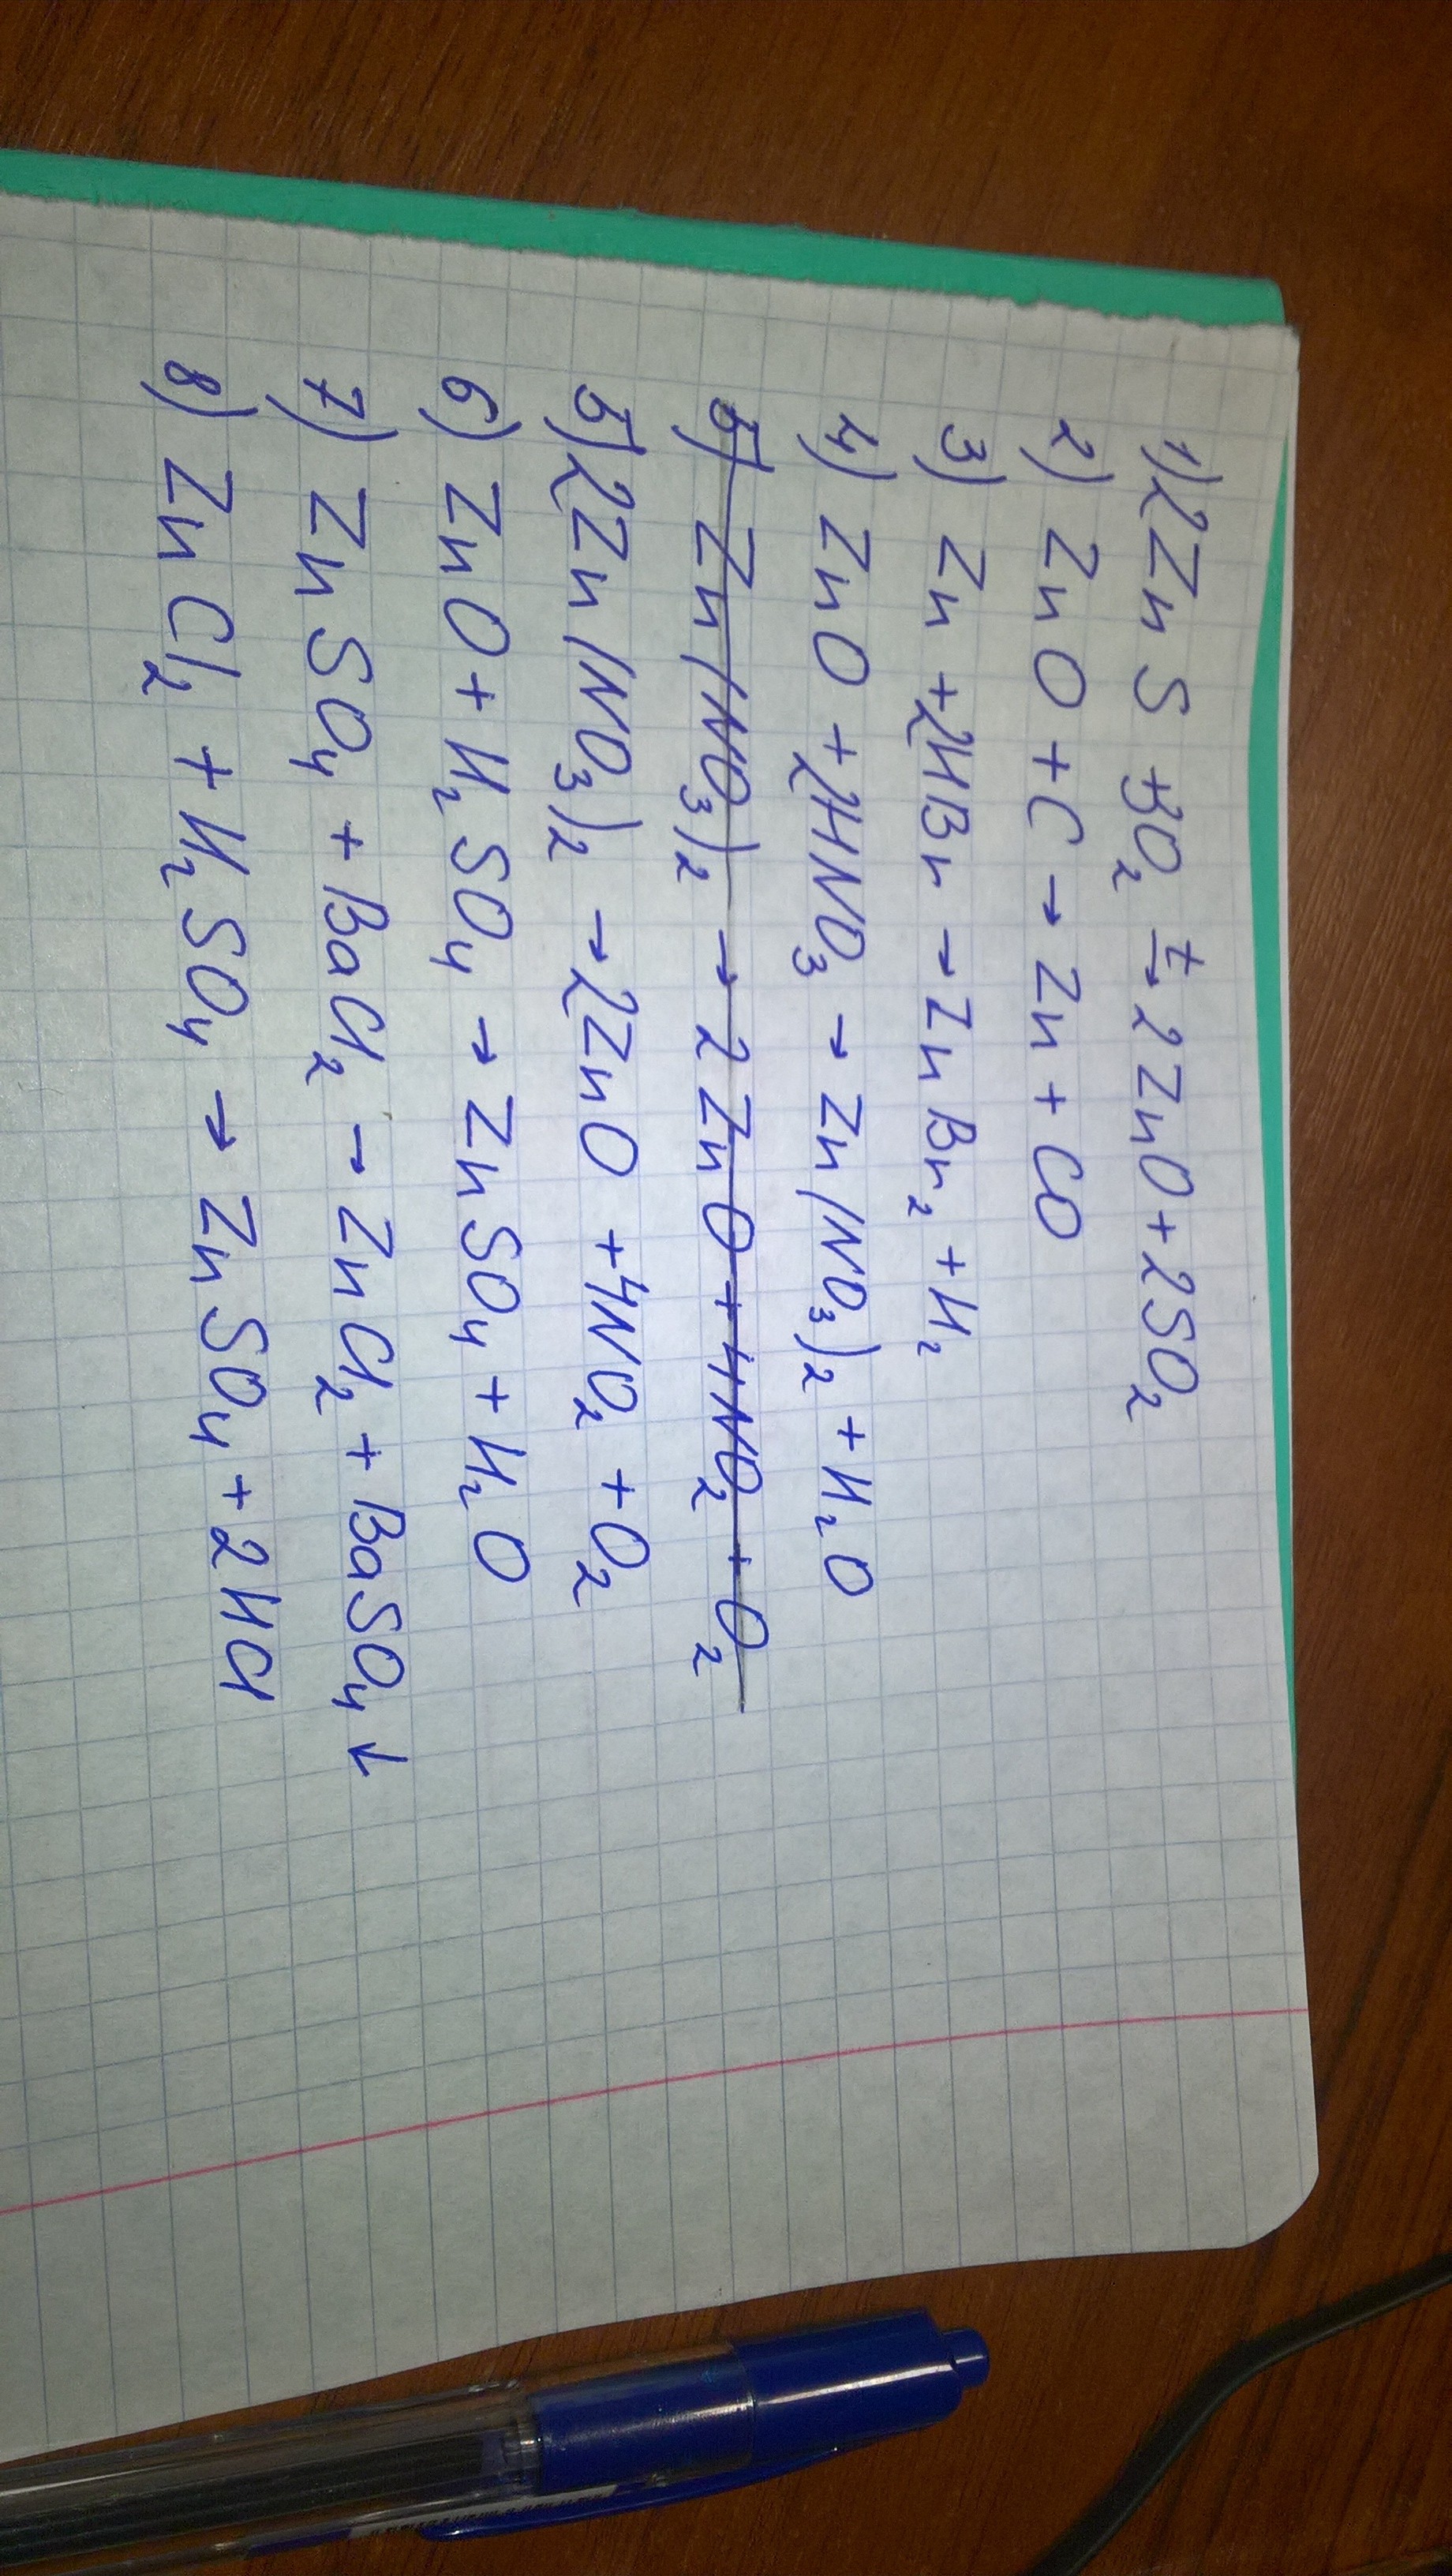 1) 2ZnS + 3O₂ →ᵗ 2ZnO + 2SO₂
2) ZnO + C → Zn + CO
3) Zn + 2HBr → ZnBr₂ + H₂
4) ZnO + 2HNO₃ → Zn(NO₃)₂ + H₂O
5) Zn(NO₃)₂ → 2ZnO + 4NO₂ + O₂
5) 2Zn(NO₃)₂ → 2ZnO + 4NO₂ + O₂
6) ZnO + H₂SO₄ → ZnSO₄ + H₂O
7) ZnSO₄ + BaCl₂ → ZnCl₂ + BaSO₄ ↓
8) ZnCl₂ + H₂SO₄ → ZnSO₄ + 2HCl